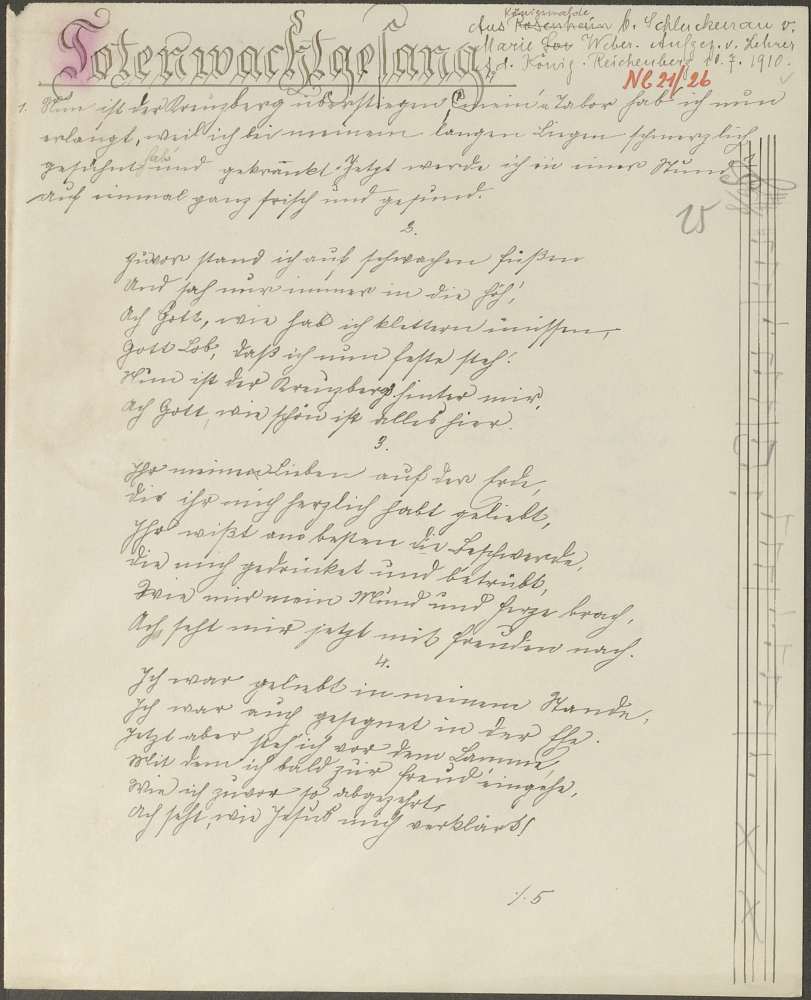 Totenwachtgesang.
Königswalde
Aus Rosenhain b. Schluckenau v.
Marie Weber. Aufgez. v. Lehrer
d. König. Reichenberg 10. 7. 1910.
NE 21/26
1. Nun ist der Kreuzberg überstiegen, mein'n Tabor hab' ich nun
erlangt, weil ich bei meinem langen Liegen schmerzlich
hab'
gesühnt und gekränkt. Jetzt werde ich in einer Stund'
auf einmal ganz frisch und gesund.
25
2.
Zuvor stand ich auf schwachen Füßen
Und sah nur immer in die Höh',
Ach Gott, wie hab ich klettern müssen,
Gott Lob, daß ich nun feste steh'!
Nun ist der Kreuzberg hinter mir,
Ach Gott, wie schön ist alles hier.
3.
Ihr meine Lieben auf der Erde,
Die ihr mich herzlich habt geliebt,
Ihr wißt am besten die Beschwerde,
Die mich gedrücket und betrübt,
Wie mir mein Mund und Herze brach,
Ach seht mir jetzt mit Freuden nach.
4.
Ich war geliebt in meinem Stande,
Ich war auch gesegnet in der Ehe.
Jetzt aber steh' ich vor dem Lamme,
Mit dem ich bald zur Freud' eingehe,
Wie ich zuvor so abgezehrt,
Ach seht, wie Jesus mich verklärt!
./. 5